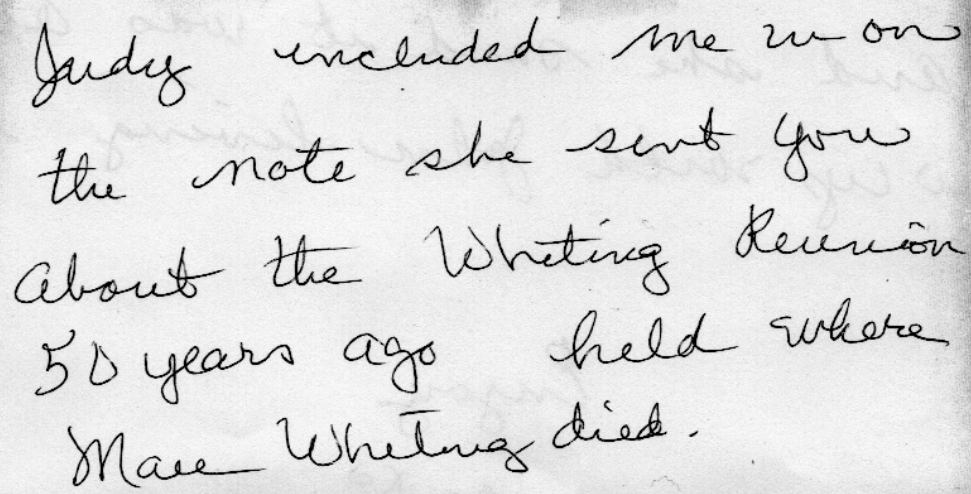 Judy included me in on
the note she sent you
about the Whiting Reunion
50 years ago held where
Mae Whiting died.